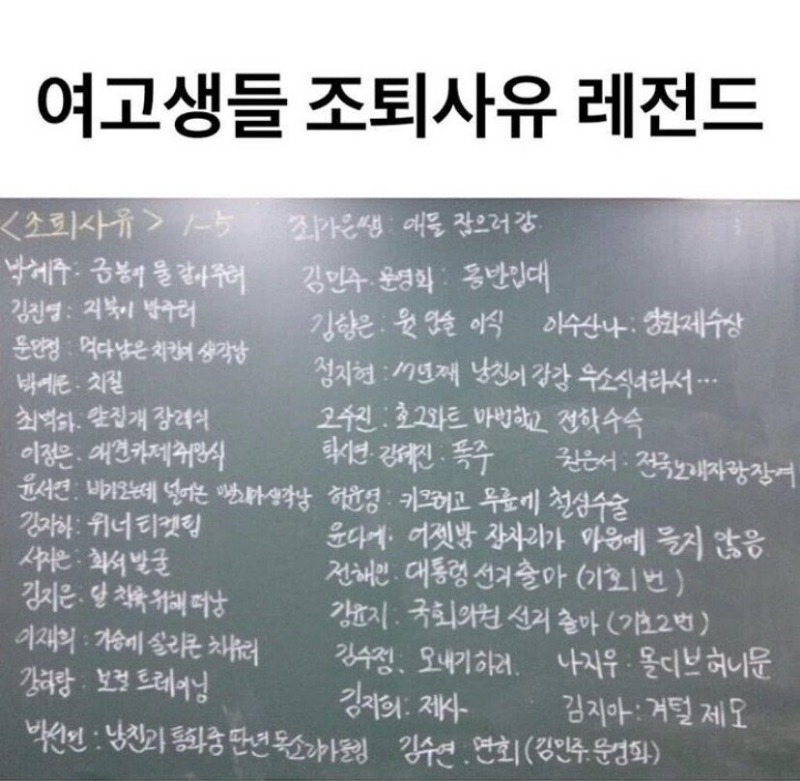 여고생들 조퇴사유 레전드
<조퇴사유> 1-5
박혜주: 금붕어 물 갈아주러
김진영: 거북이 밥주러
문민정: 먹다남은 치킨이 생각남
박예른: 치질
최벽하: 앞집개 장례식
이정은: 애견카페 취임식
윤서연: 비가오는데 널어논 빨래가 생각남
김자하: 위너 티켓팅
서지은: 화석 발굴
김지은: 달 착륙 위해 떠남
이재희: 가슴에 실리콘 채우러
강하람: 보컬 트레이닝
박선민: 남친과 통화중 딴년 목소리가 들림
최가은쌤: 애들 잡으러 감
김민주·문영화: 동반입대
김향은: 윗 입술 이식 이수산나: 영화제수상
정지현: 17년째 남친이 감감 무소식이라서...
고수진: 호그와트 마법학교 전학 수속
탁시연·김혜진: 폭주 권은서: 전국노래자랑참여
하윤영: 키크려고 무릎에 철심수술
윤다예: 어젯밤 잠자리가 마음에 들지 않음
전해인: 대통령 선거 출마 (기호1번)
강윤지: 국회의원 선거 출마 (기호2번)
김수정: 모내기하러. 나지우: 몰디브 허니문
김지희: 제사 김지아: 겨털 제모
김수연: 면회 (김민주·문영화)